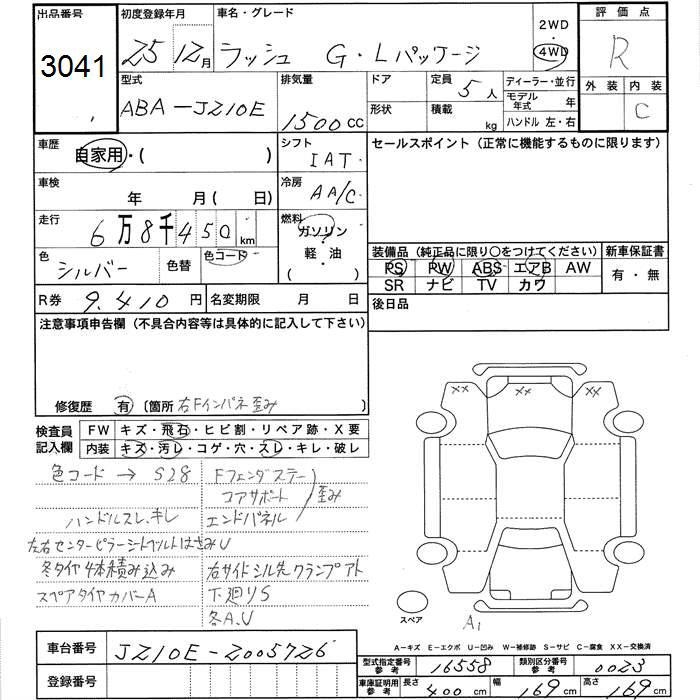 出品番号
3041
初度登録年月
25 12月
車名・グレード
ラッシュ G・Lパッケージ
2WD
4WD
評価点
R
外装 内装
C
型式
ABA-JZ10E
排気量
1500cc
ドア
形状
定員 5人
積載 kg
ディーラー・並行
モデル年式 年
ハンドル 左・右
車歴
自家用・( )
シフト
IAT
セールスポイント（正常に機能するものに限ります）
車検
年 月 ( 日)
冷房
AA/C
走行
6万8千450km
燃料
ガソリン
軽・油
( ・ )
色
シルバー
色替
色コード
装備品（純正品に限り〇をつけてください）
新車保証書
PS PW ABS エアB AW
SR ナビ TV カワ
有・無
R券 9,410円
名変期限 月 日
後日品
注意事項申告欄（不具合内容等は具体的に記入して下さい）
修復歴 有 〔箇所 右Fインパネ歪み 〕
検査員記入欄
FW キズ・飛石・ヒビ割・リペア跡・X要
内装 キズ・汚レ・コゲ・穴・スレ・キレ・破レ
色コード → S28
Fフェンダステー
コアサポート
歪み
ハンドルスレ、キレ
エンドパネル
左右センターピラーシートベルトはさみU
冬タイヤ4本積み込み
右サイドシル先クランプアト
スペアタイヤカバーA
下廻りS
各A、U
XX XX XX
スペア
A1
A-キズ E-エクボ U-凹み W-補修跡 S-サビ C-腐食 XX-交換済
車台番号
JZ10E-2005726
登録番号
型式指定番号参考 16558
類別区分番号参考 0023
車庫証明用参考 長さ 400cm 幅 169cm 高さ 169cm